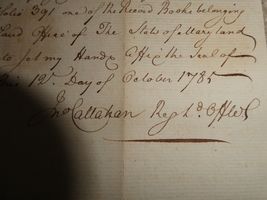 Folio 391 one of the Record Books belonging
Land Office of The State of Maryland
to set my Hand & Affix the Seal of
this 12th Day of October 1785
Jno Callahan Regr Ld Off W S